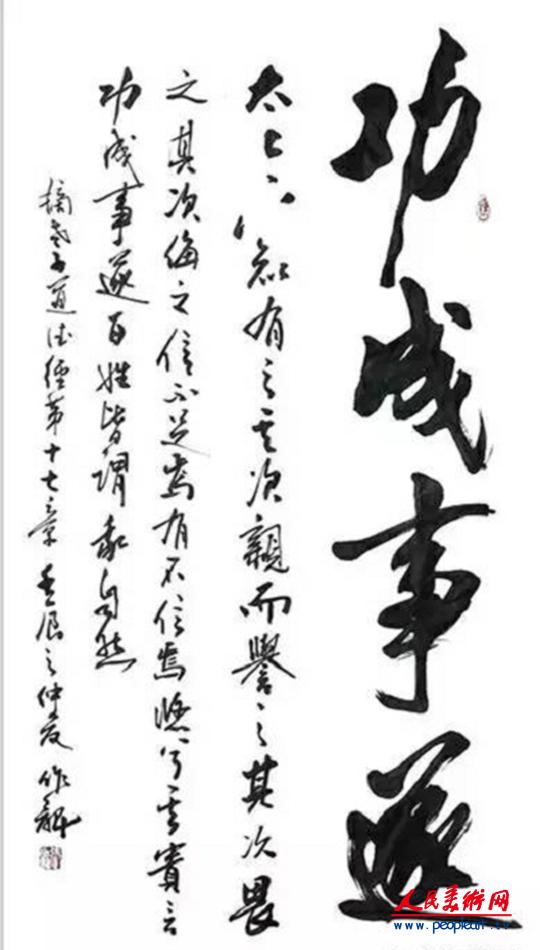 功成事遂
太上下知有之其次親而譽之其次畏
之其次侮之信不足焉有不信焉悠兮其貴言
功成事遂百姓皆謂我自然
摘老子道德經第十七章 壬辰之仲夏
人民美術网
www.peopleart.tv